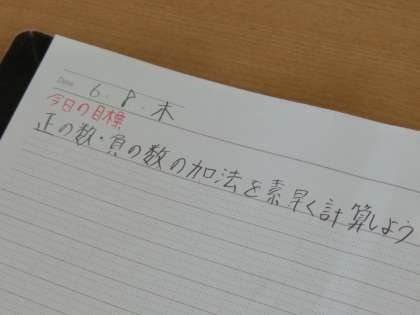 Date 6.8.木
今日の目標
正の数・負の数の加法を素早く計算しよう